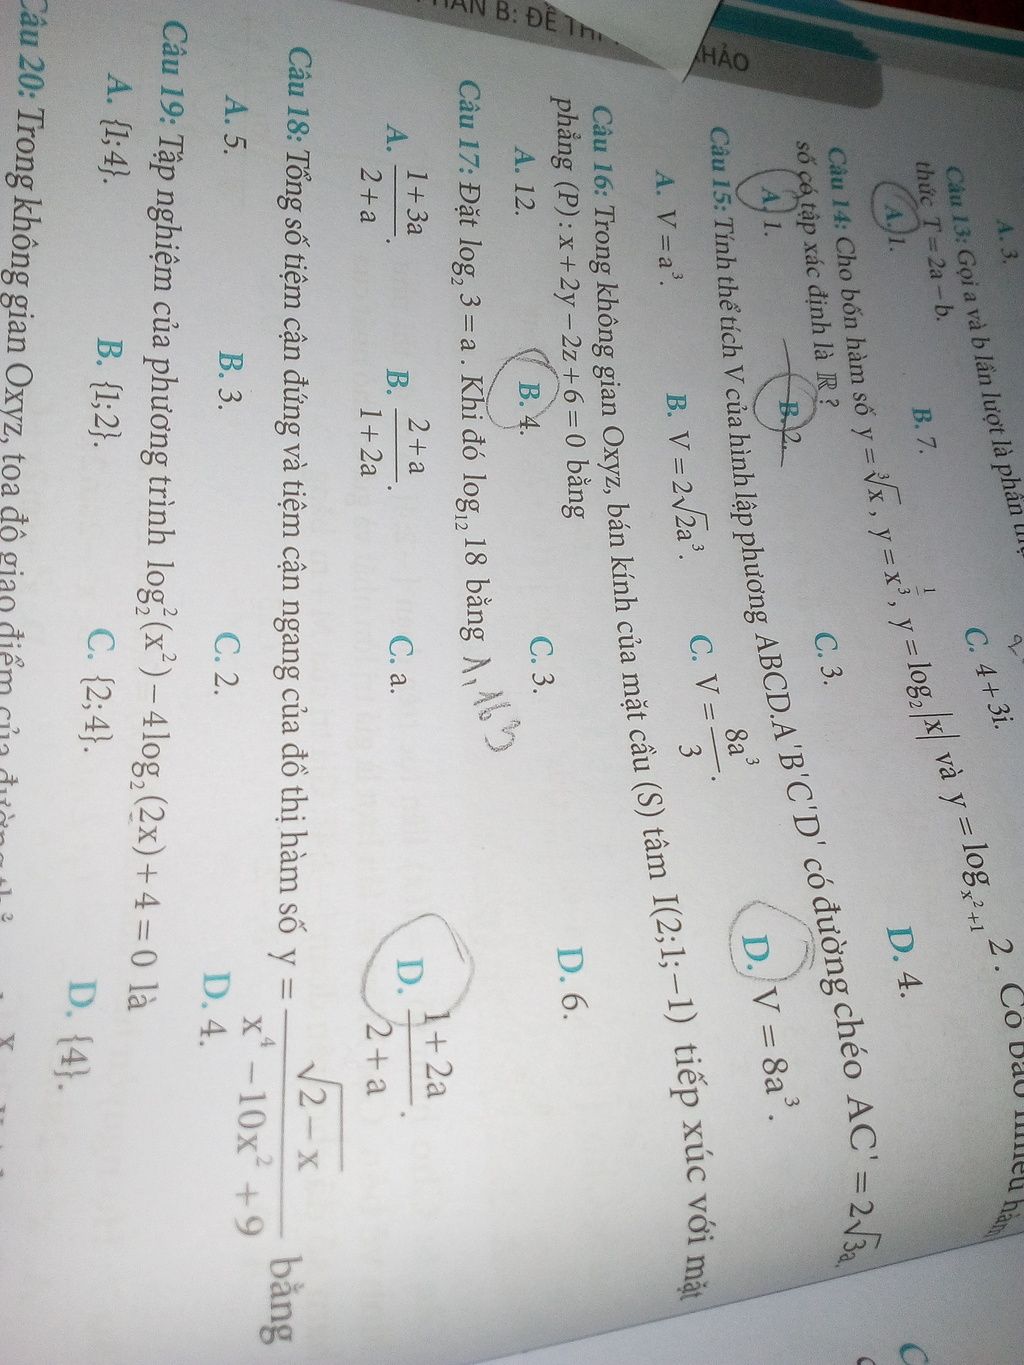 PHẦN B: ĐỀ THI
KHẢO
A. 3.
C. 4 + 3i.
Câu 13: Gọi a và b lần lượt là phần
thức T = 2a − b.
A. 1.
B. 7.
Câu 14: Cho bốn hàm số y = ∛x, y = x³, y = log₂|x| và y = log_{x²+1} 2. Có bao nhiêu hàm
số có tập xác định là ℝ?
A. 1.
B. 2.
C. 3.
D. 4.
Câu 15: Tính thể tích V của hình lập phương ABCD.A'B'C'D' có đường chéo AC' = 2√3a.
A. V = a³.
B. V = 2√2a³.
C. V = 8a³/3.
D. V = 8a³.
Câu 16: Trong không gian Oxyz, bán kính của mặt cầu (S) tâm I(2;1;−1) tiếp xúc với mặt
phẳng (P): x + 2y − 2z + 6 = 0 bằng
A. 12.
B. 4.
C. 3.
D. 6.
Câu 17: Đặt log₂ 3 = a. Khi đó log₁₂ 18 bằng 1,163
A. (1 + 3a)/(2 + a).
B. (2 + a)/(1 + 2a).
C. a.
D. (1 + 2a)/(2 + a).
Câu 18: Tổng số tiệm cận đứng và tiệm cận ngang của đồ thị hàm số y = √(2 − x)/(x⁴ − 10x² + 9) bằng
A. 5.
B. 3.
C. 2.
D. 4.
Câu 19: Tập nghiệm của phương trình log₂²(x²) − 4log₂(2x) + 4 = 0 là
A. {1;4}.
B. {1;2}.
C. {2;4}.
D. {4}.
Câu 20: Trong không gian Oxyz, tọa độ giao điểm của